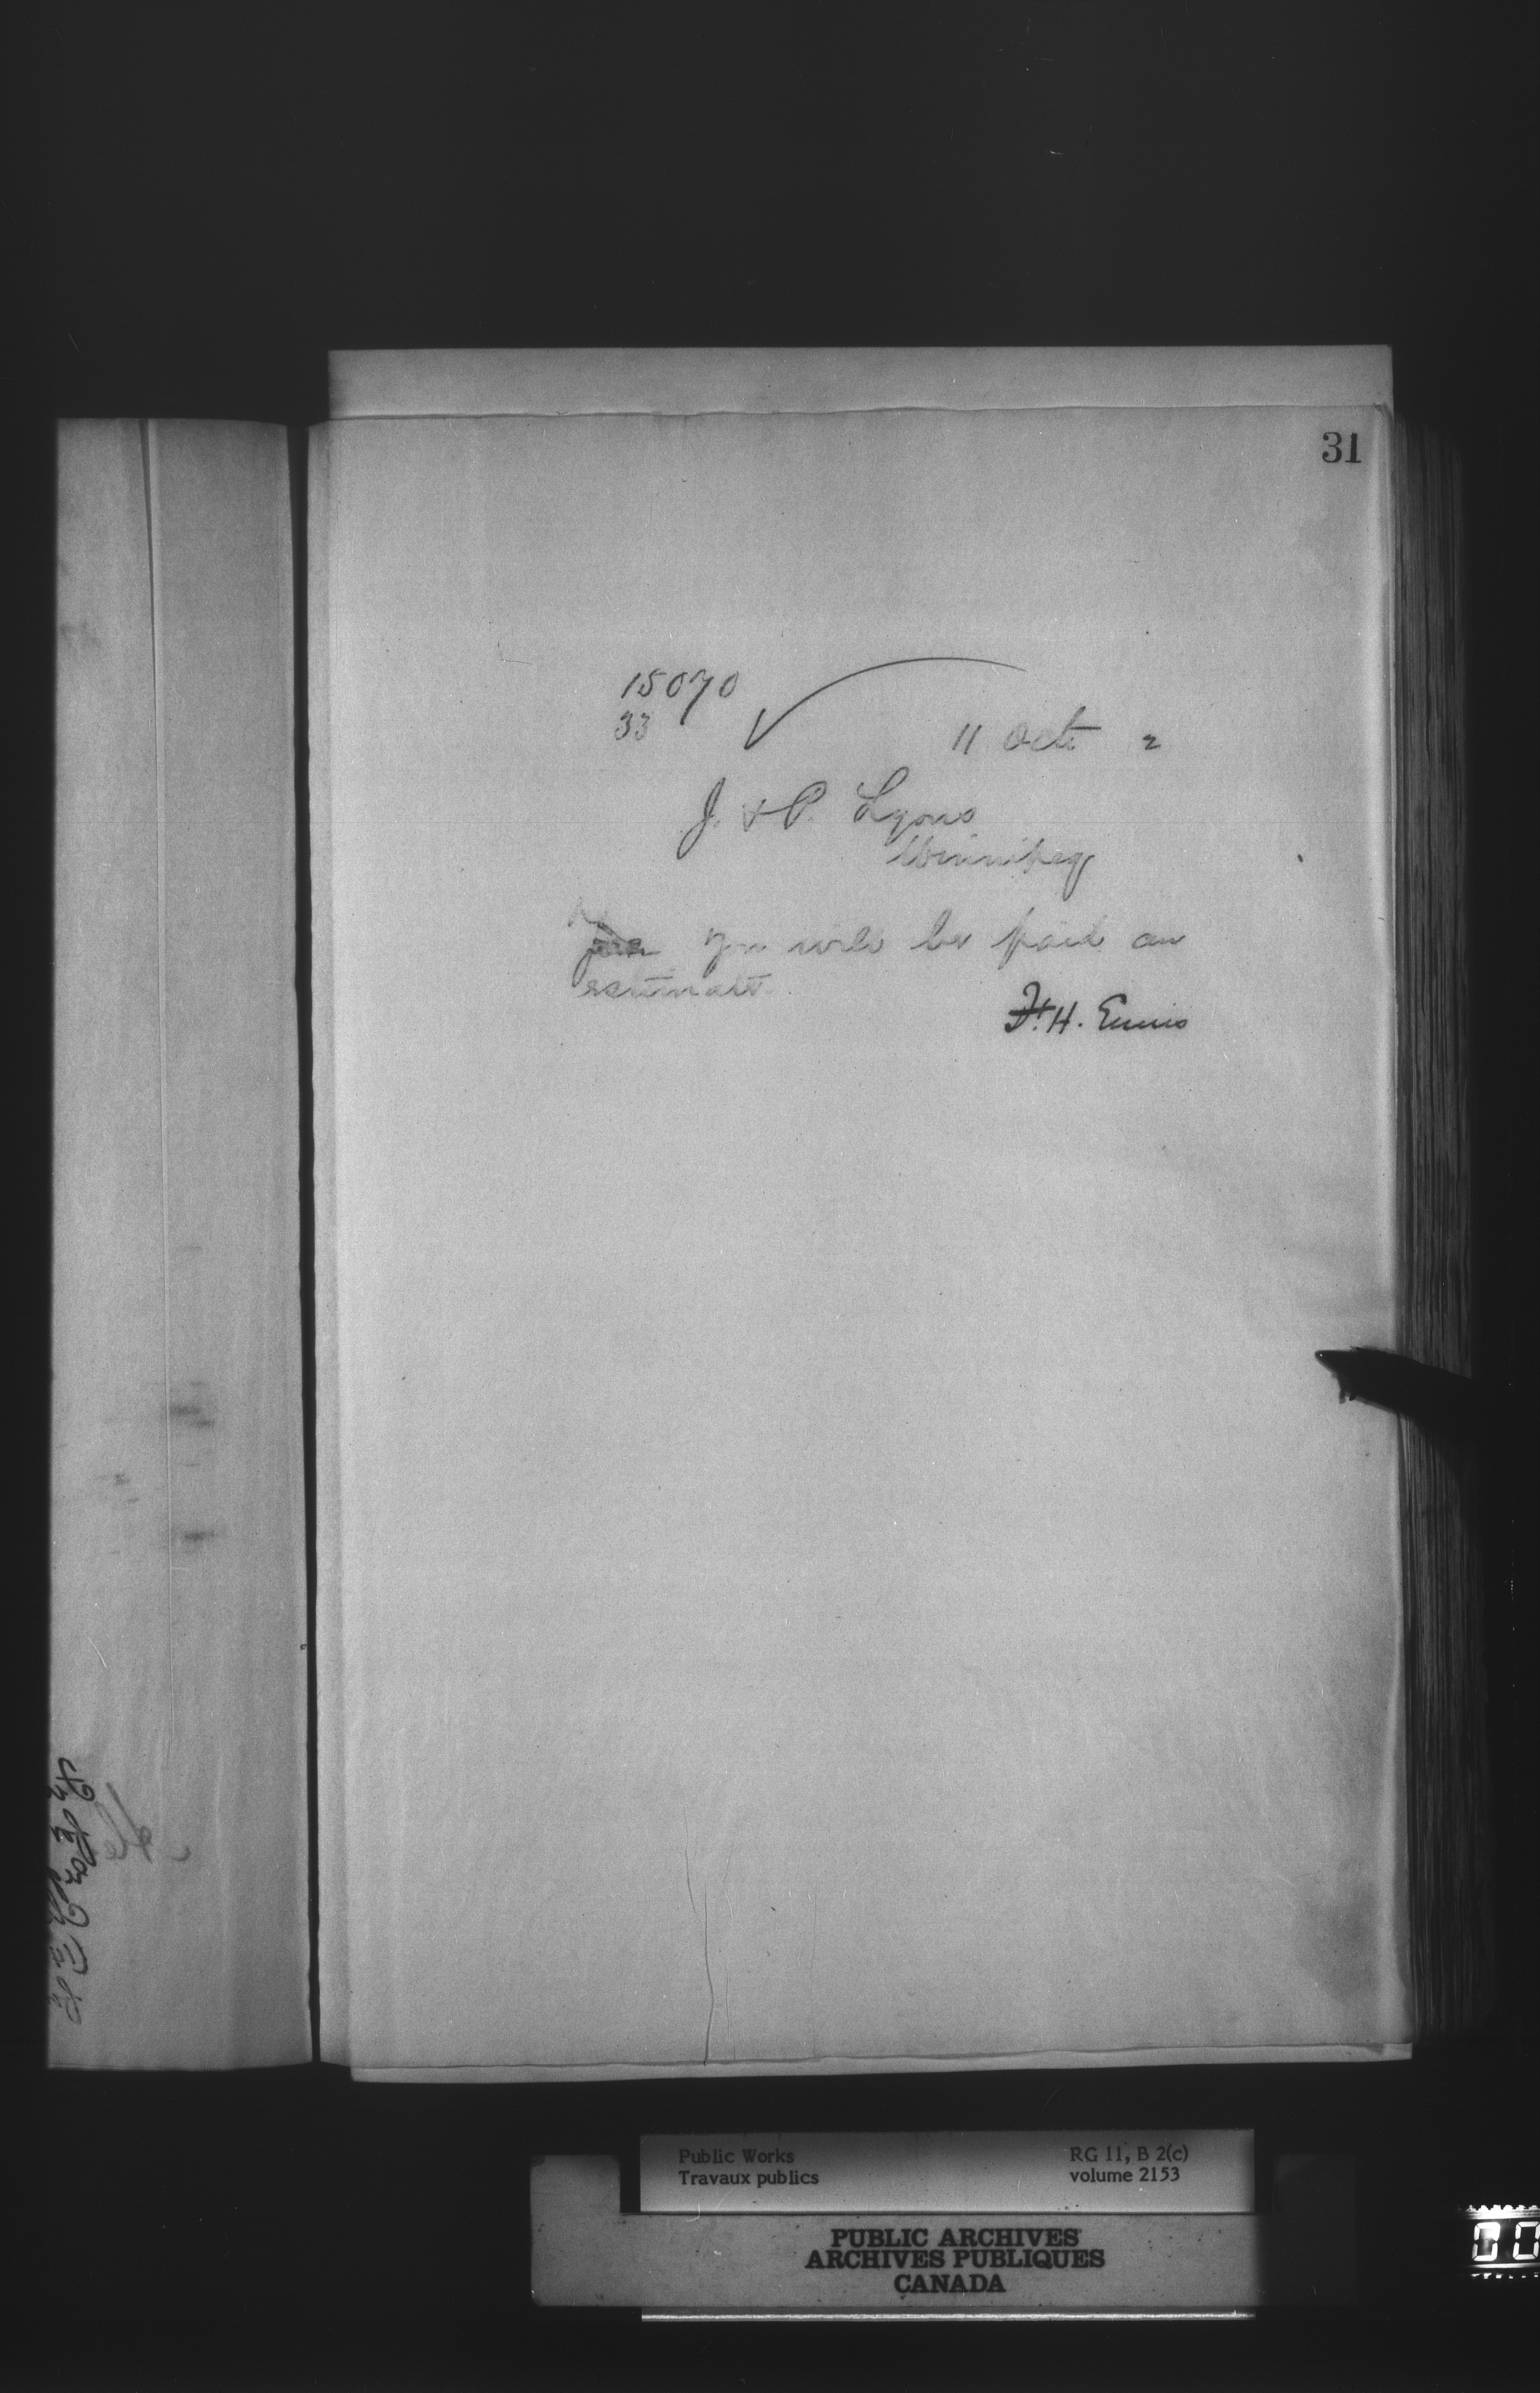 31
15070
33
11 Oct 2
J. & P. Lyons
Winnipeg
you will be paid an
estimate.
F. H. Ennis
Public Works
Travaux publics
RG 11, B 2(c)
volume 2153
PUBLIC ARCHIVES
ARCHIVES PUBLIQUES
CANADA
00